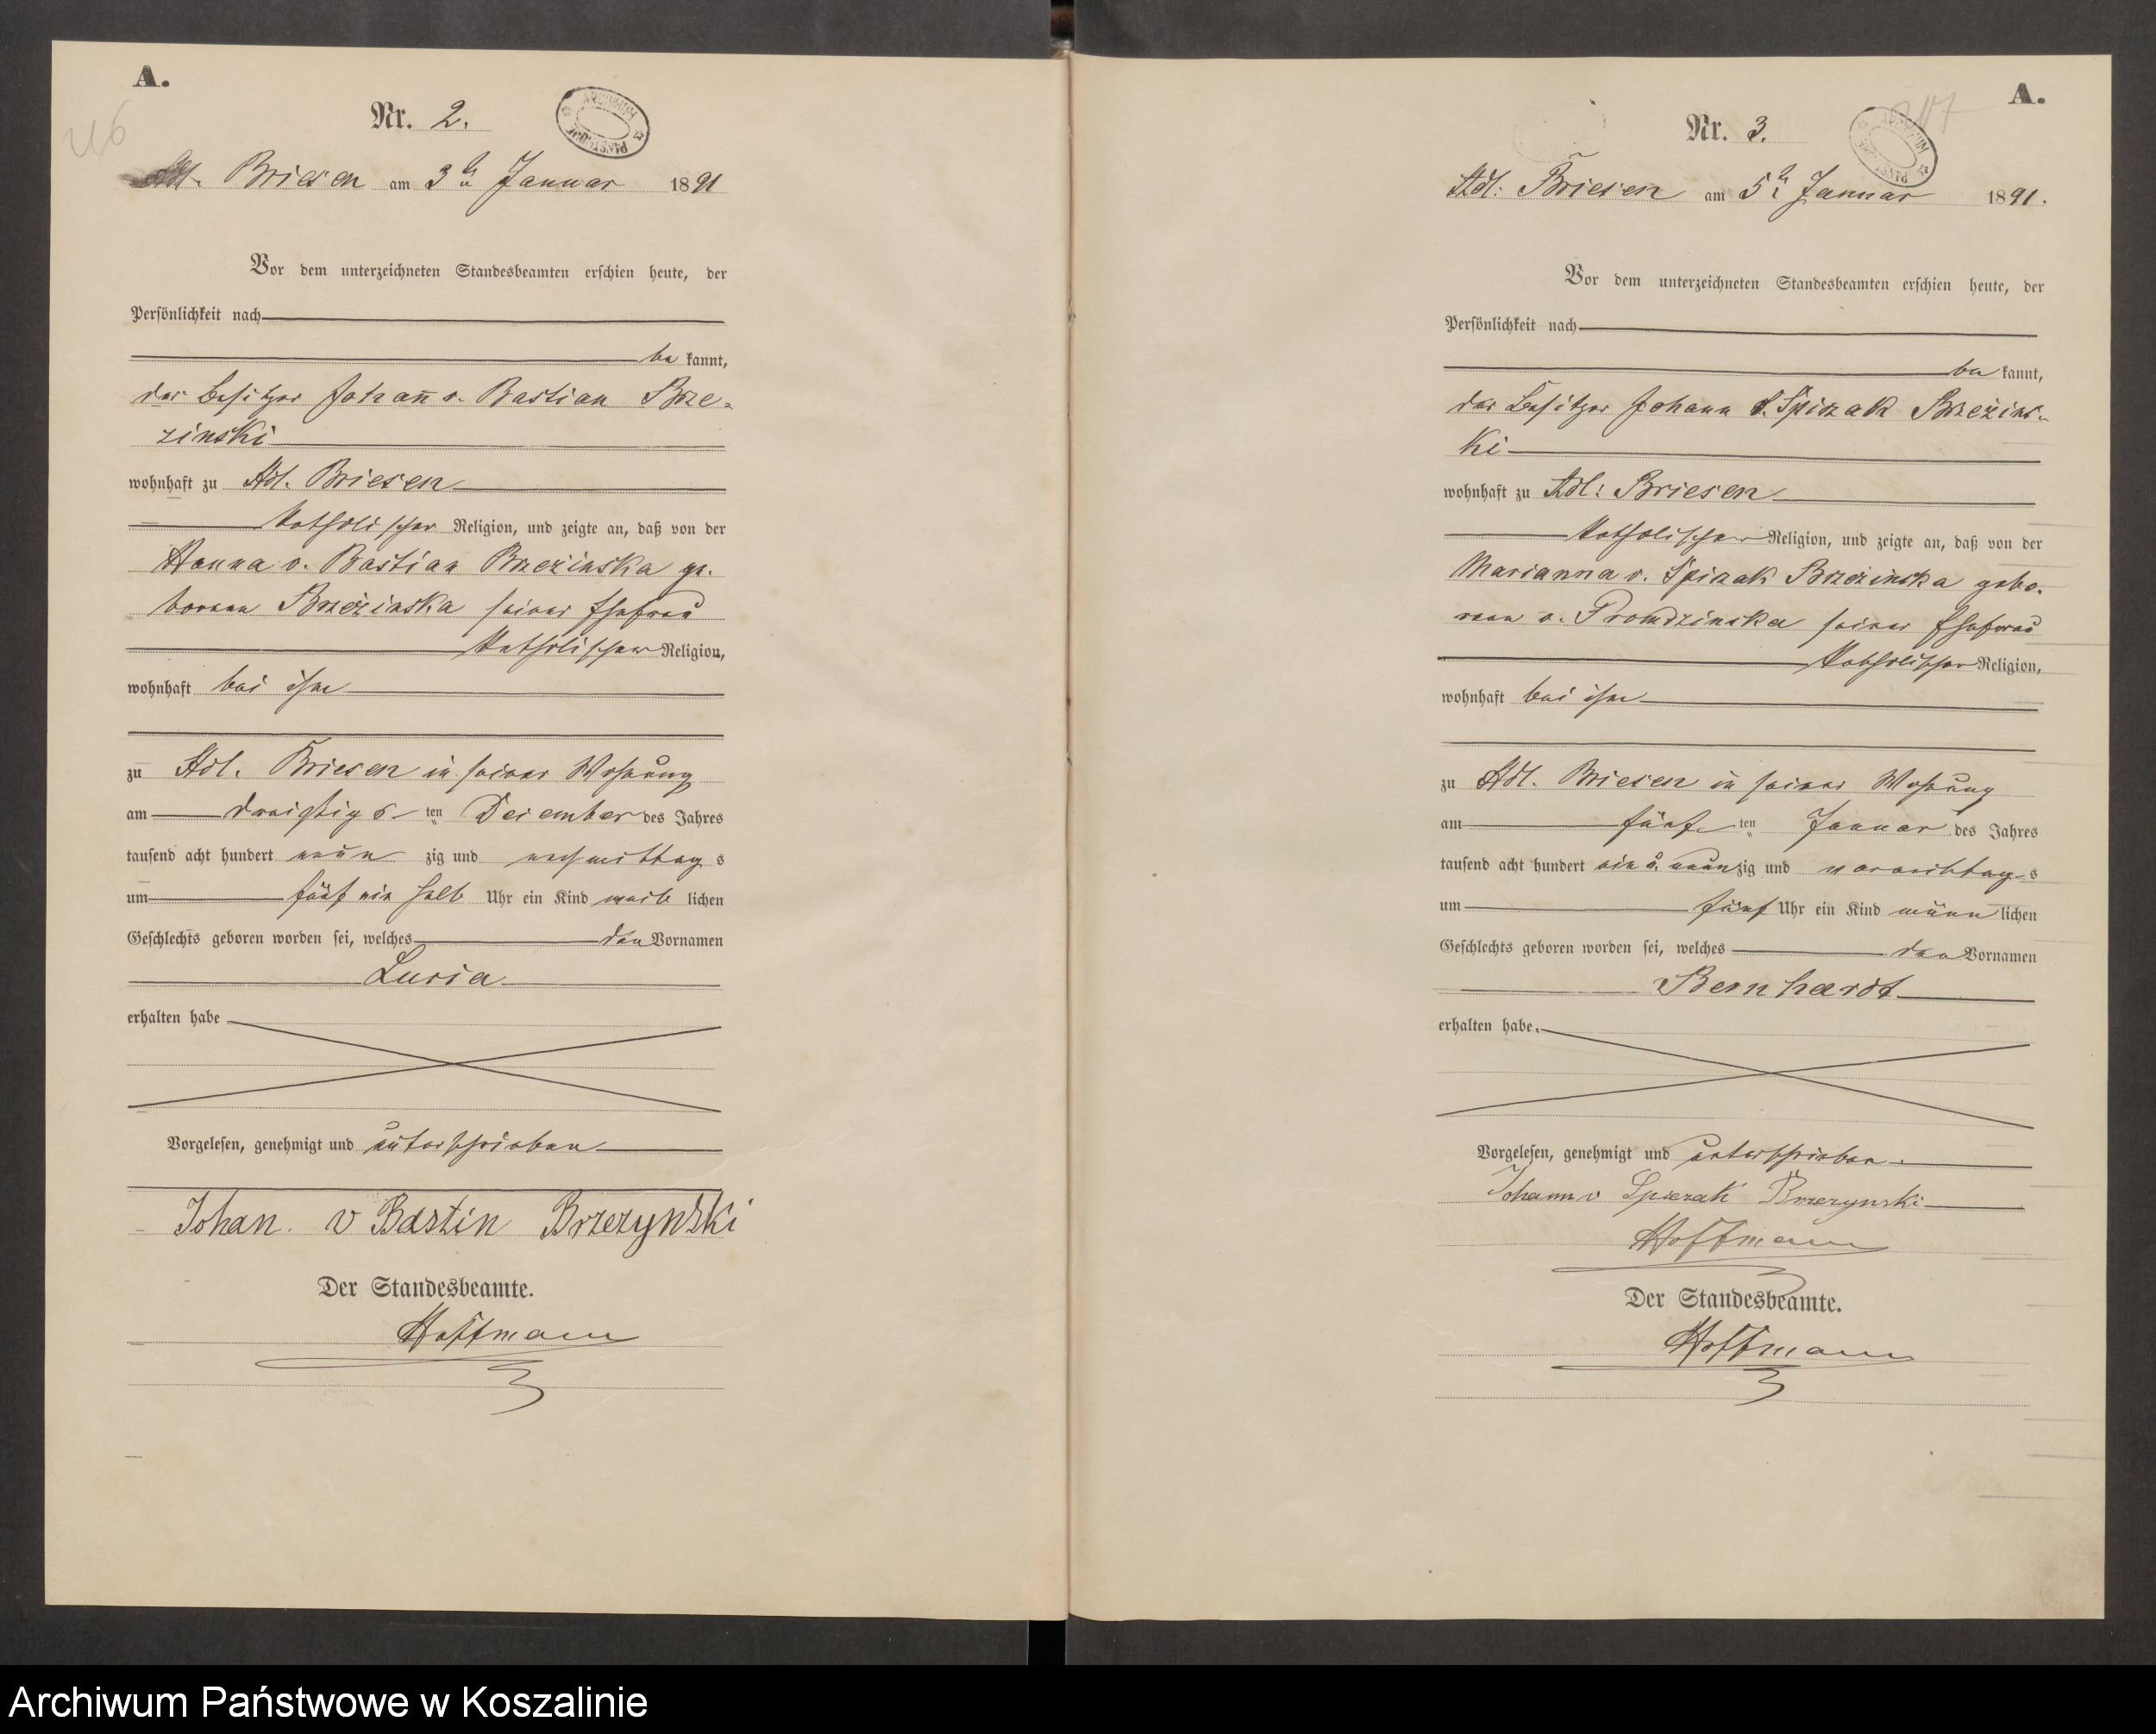 A.
246
Nr. 2.
ARCHIWUM PAŃSTWOWE
Adl. Briesen am 3ten Januar 1891
Vor dem unterzeichneten Standesbeamten erschien heute, der
Persönlichkeit nach
be kannt,
der Besitzer Johann v. Bastian Brze-
zinski
wohnhaft zu Adl. Briesen
katholischer Religion, und zeigte an, daß von der
Anna v. Bastian Brzezinska ge-
borenen Brzezinska seiner Ehefrau
katholischer Religion,
wohnhaft bei ihm
zu Adl. Briesen in seiner Wohnung
am dreißigs ten December des Jahres
tausend acht hundert neun zig und nachmittag s
um fünf ein halb Uhr ein Kind weib lichen
Geschlechts geboren worden sei, welches den Vornamen
Lucia
erhalten habe
Vorgelesen, genehmigt und unterschrieben
Johan. v Bastin Brzezynski
Der Standesbeamte.
Hoffmann
A.
247
Nr. 3.
ARCHIWUM PAŃSTWOWE
Adl: Briesen am 5ten Januar 1891.
Vor dem unterzeichneten Standesbeamten erschien heute, der
Persönlichkeit nach
be kannt,
der Besitzer Johann v. Spiczak Brzezins-
ki
wohnhaft zu Adl: Briesen
katholischer Religion, und zeigte an, daß von der
Marianna v. Spiczak Brzezinska gebo-
rene v. Prondzinska seiner Ehefrau
katholischer Religion,
wohnhaft bei ihm
zu Adl. Briesen in seiner Wohnung
am fünf ten Januar des Jahres
tausend acht hundert ein u. neunzig und vormittag s
um fünf Uhr ein Kind männ lichen
Geschlechts geboren worden sei, welches den Vornamen
Bernhardt
erhalten habe.
Vorgelesen, genehmigt und unterschrieben.
Johann v Spiczak Brzezynski
Hoffmann
Der Standesbeamte.
Hoffmann
Archiwum Państwowe w Koszalinie